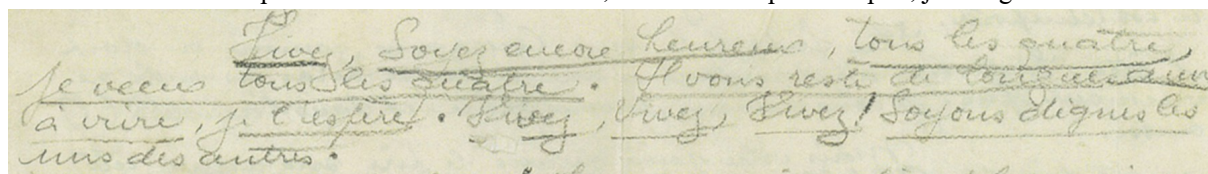 Vivez, Soyez encore heureux, tous les quatre,
je veux tous les quatre. Il vous reste de longues
à vivre, je l'espère. Vivez, Vivez, Vivez! Soyons dignes les
uns des autres.